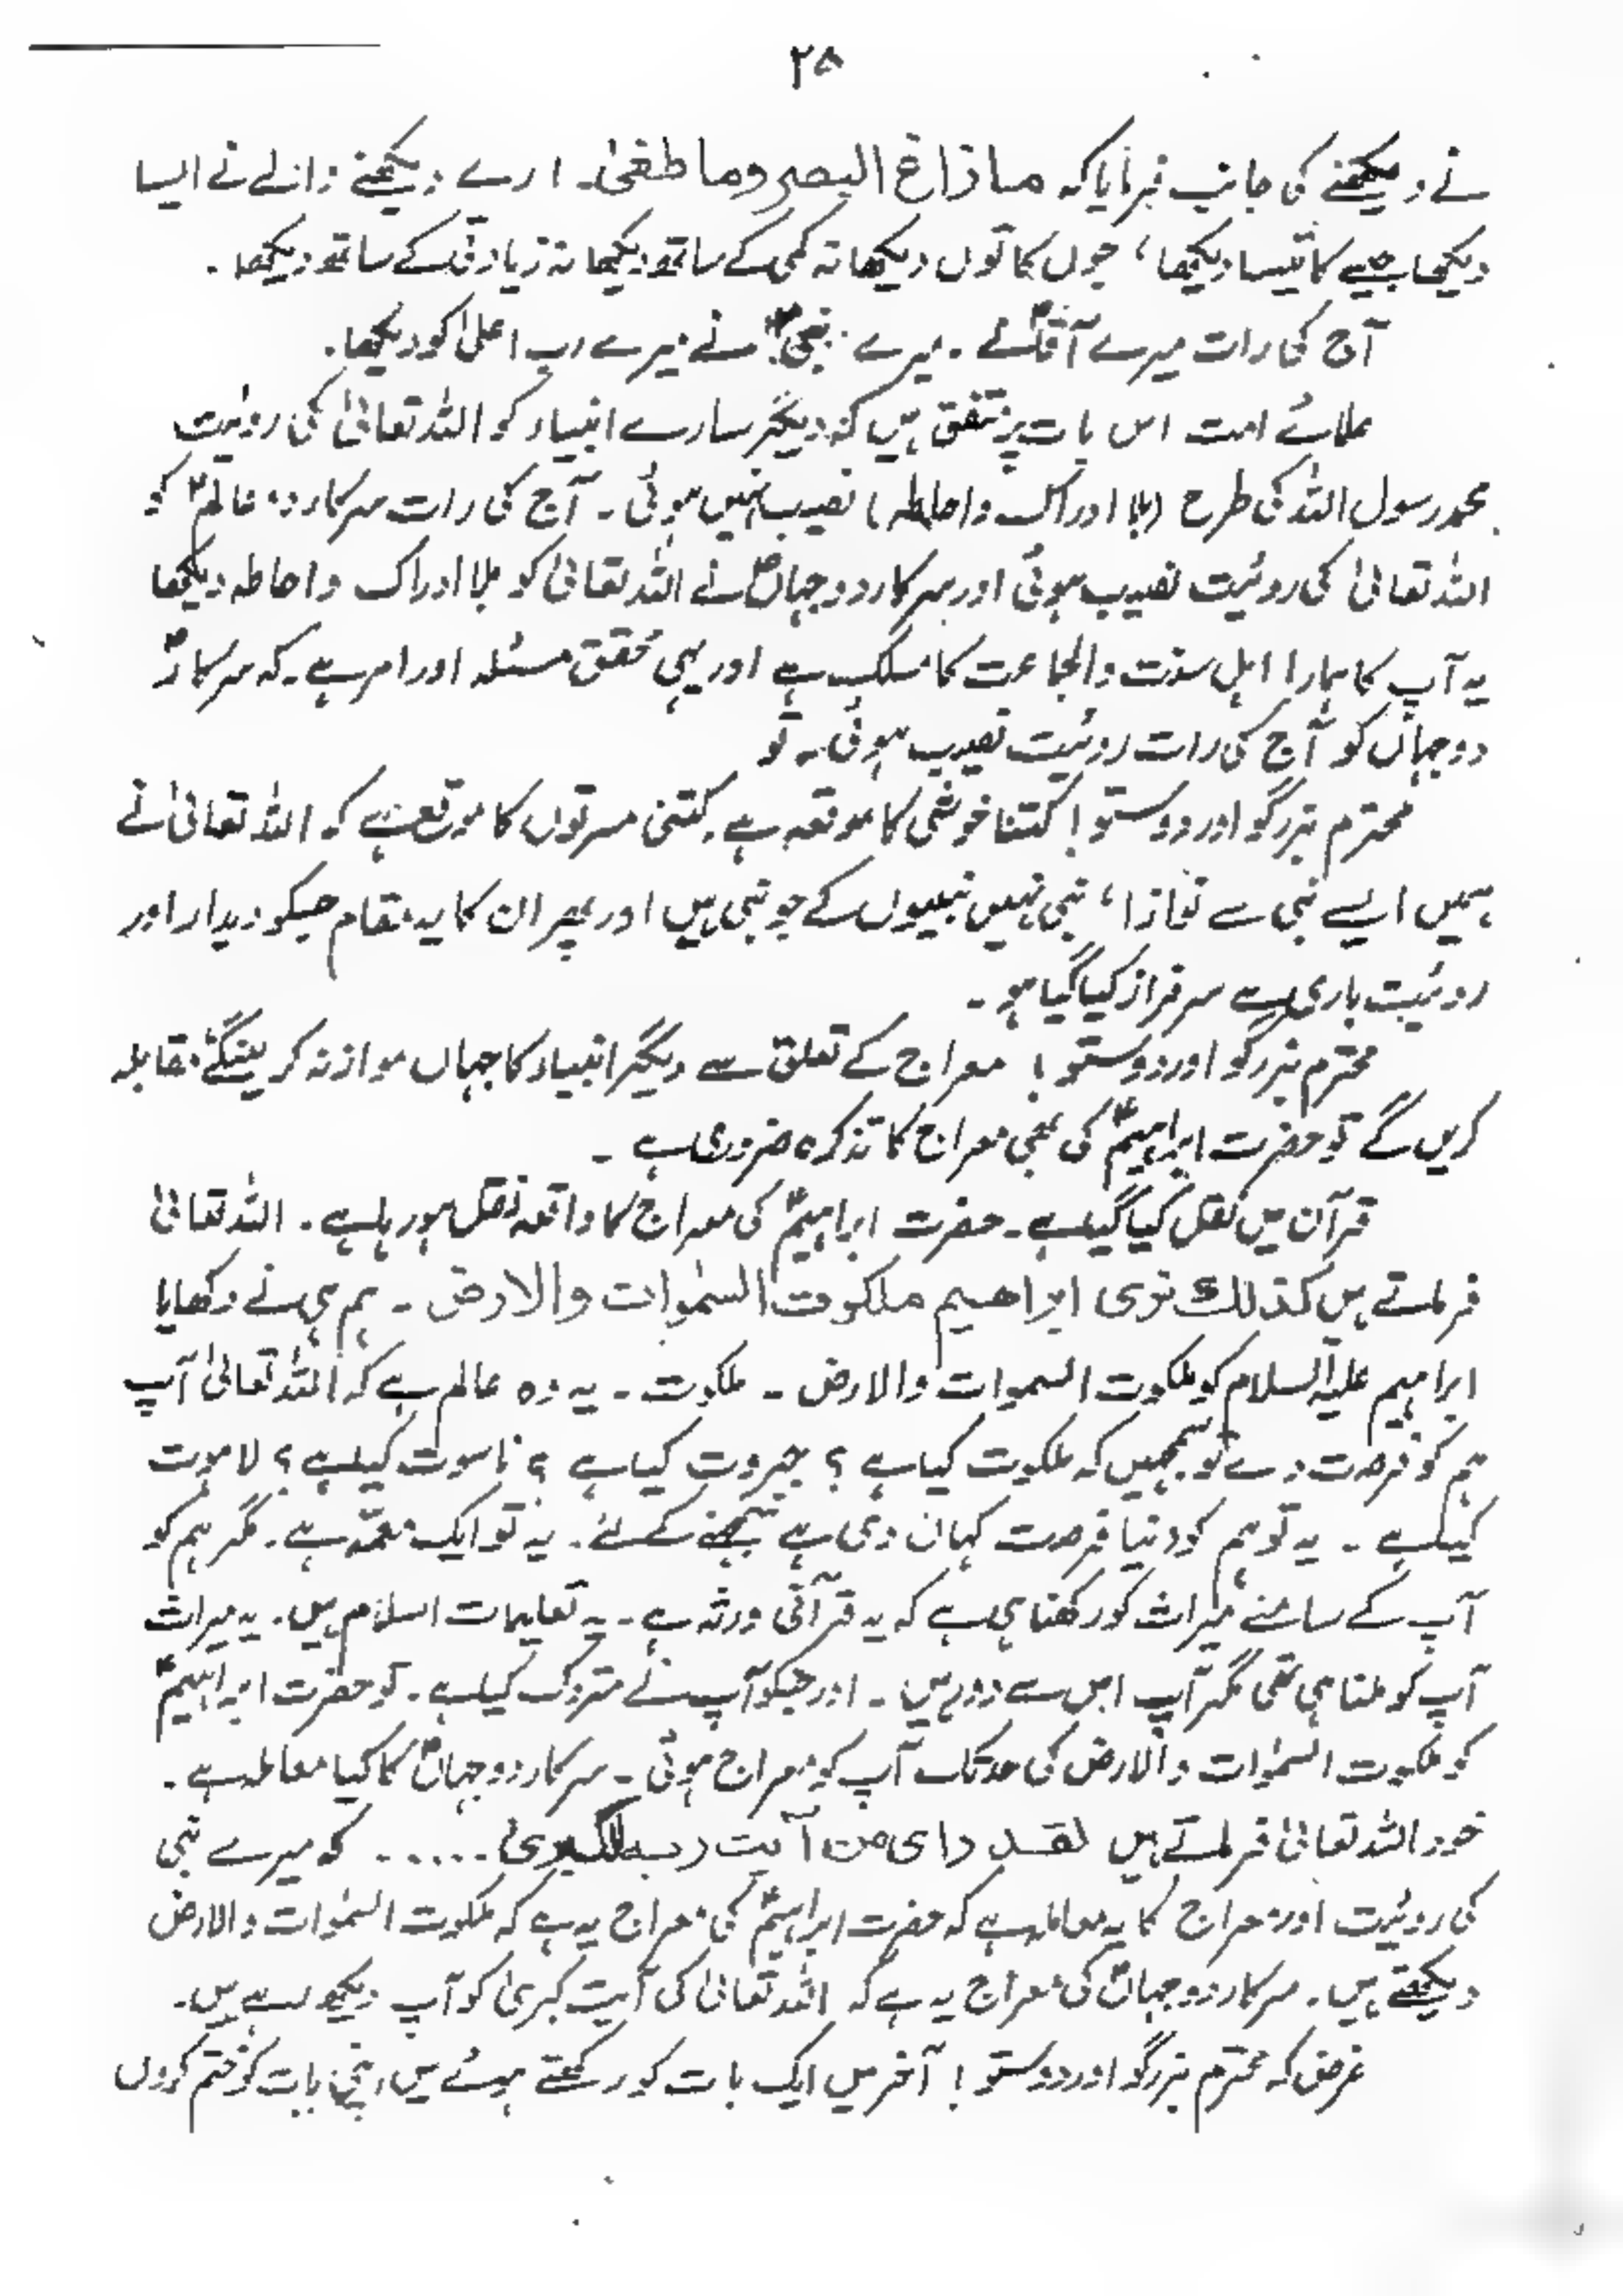 ۲۵
نے دیکھنے کی جانب فرمایا کہ ماذاغ البصر وما طغیٰ۔ ارے دیکھنے والے نے ایسا
دیکھا جیسے کا تیسا دیکھا، جوں کا توں دیکھا نہ کمی کے ساتھ دیکھا نہ زیادتی کے ساتھ دیکھا۔
آج کی رات میرے آقاؐ نے۔ میرے نبیؐ نے میرے رب اعلیٰ کو دیکھا۔
علمائے امت اس بات پر متفق ہیں کہ دیگر سارے انبیاء کو اللہ تعالیٰ کی روئیت
محمد رسول اللہ کی طرح (بلا ادراک و احاطہ) نصیب نہیں ہوئی۔ آج کی رات سرکار دو عالمؐ کو
اللہ تعالیٰ کی روئیت نصیب ہوئی اور سرکار دو جہاںؐ نے اللہ تعالیٰ کو بلا ادراک و احاطہ دیکھا
یہ آپ کا ہمارا اہل سنت والجاعت کا مسلک ہے اور یہی محقق مسئلہ اور امر ہے۔ کہ سرکارؐ
دو جہاں کو آج کی رات روئیت نصیب ہوئی۔ تو
محترم بزرگو اور دوستو! کتنا خوشی کا موقعہ ہے۔ کتنی مسرتوں کا موقع ہے کہ اللہ تعالیٰ نے
ہمیں ایسے نبی سے نوازا، نبی نہیں نبیوں کے جو نبی ہیں اور پھر ان کا یہ مقام جسکو دیدار اور
روئیت باری سے سرفراز کیا گیا ہو۔
محترم بزرگو اور دوستو! معراج کے تعلق سے دیگر انبیاء کا جہاں موازنہ کرینگے مقابلہ
کریں گے تو حضرت ابراہیمؑ کی بھی معراج کا تذکرہ ضروری ہے۔
قرآن میں نقل کیا گیا ہے۔ حضرت ابراہیمؑ کی معراج کا واقعہ نقل ہو رہا ہے۔ اللہ تعالیٰ
فرماتے ہیں کذلك نری ابراھیم ملکوت السمٰوات والارض۔ ہم ہی نے دکھایا
ابراہیم علیہ السلام کو ملکوت السموات والارض۔ ملکوت۔ یہ وہ عالم ہے کہ اللہ تعالیٰ آپ
ہم کو فرصت دے تو سمجھیں کہ ملکوت کیا ہے؟ جبروت کیا ہے؟ ناسوت کیا ہے؟ لاہوت
کیا ہے۔ یہ تو ہم کو دنیا فرصت کہاں دی ہے سمجھنے کے لئے۔ یہ تو ایک معمّہ ہے۔ مگر ہم کو
آپ کے سامنے میراث کو رکھنا ہی ہے کہ یہ قرآنی ورثہ ہے۔ یہ تعلیمات اسلام ہیں۔ یہ میراث
آپ کو ملنا ہی تھی مگر آپ اس سے دور ہیں۔ اور جسکو آپ نے متروک کیا ہے۔ تو حضرت ابراہیمؑ
کو ملکوت السمٰوات والارض کی حد تک آپ کو معراج ہوئی۔ سرکار دو جہاںؐ کا کیا معاملہ ہے۔
خود اللہ تعالیٰ فرماتے ہیں لقد رای من آیت ربہ الکبریٰ ..... کہ میرے نبی
کی روئیت اور معراج کا یہ معاملہ ہے کہ حضرت ابراہیمؑ کی معراج یہ ہے کہ ملکوت السمٰوات والارض
دیکھتے ہیں۔ سرکار دو جہاںؐ کی معراج یہ ہے کہ اللہ تعالیٰ کی آیت کبریٰ کو آپ دیکھ رہے ہیں۔
غرض کہ محترم بزرگو اور دوستو! آخر میں ایک بات کو رکھتے ہوئے میں اپنی بات کو ختم کروں